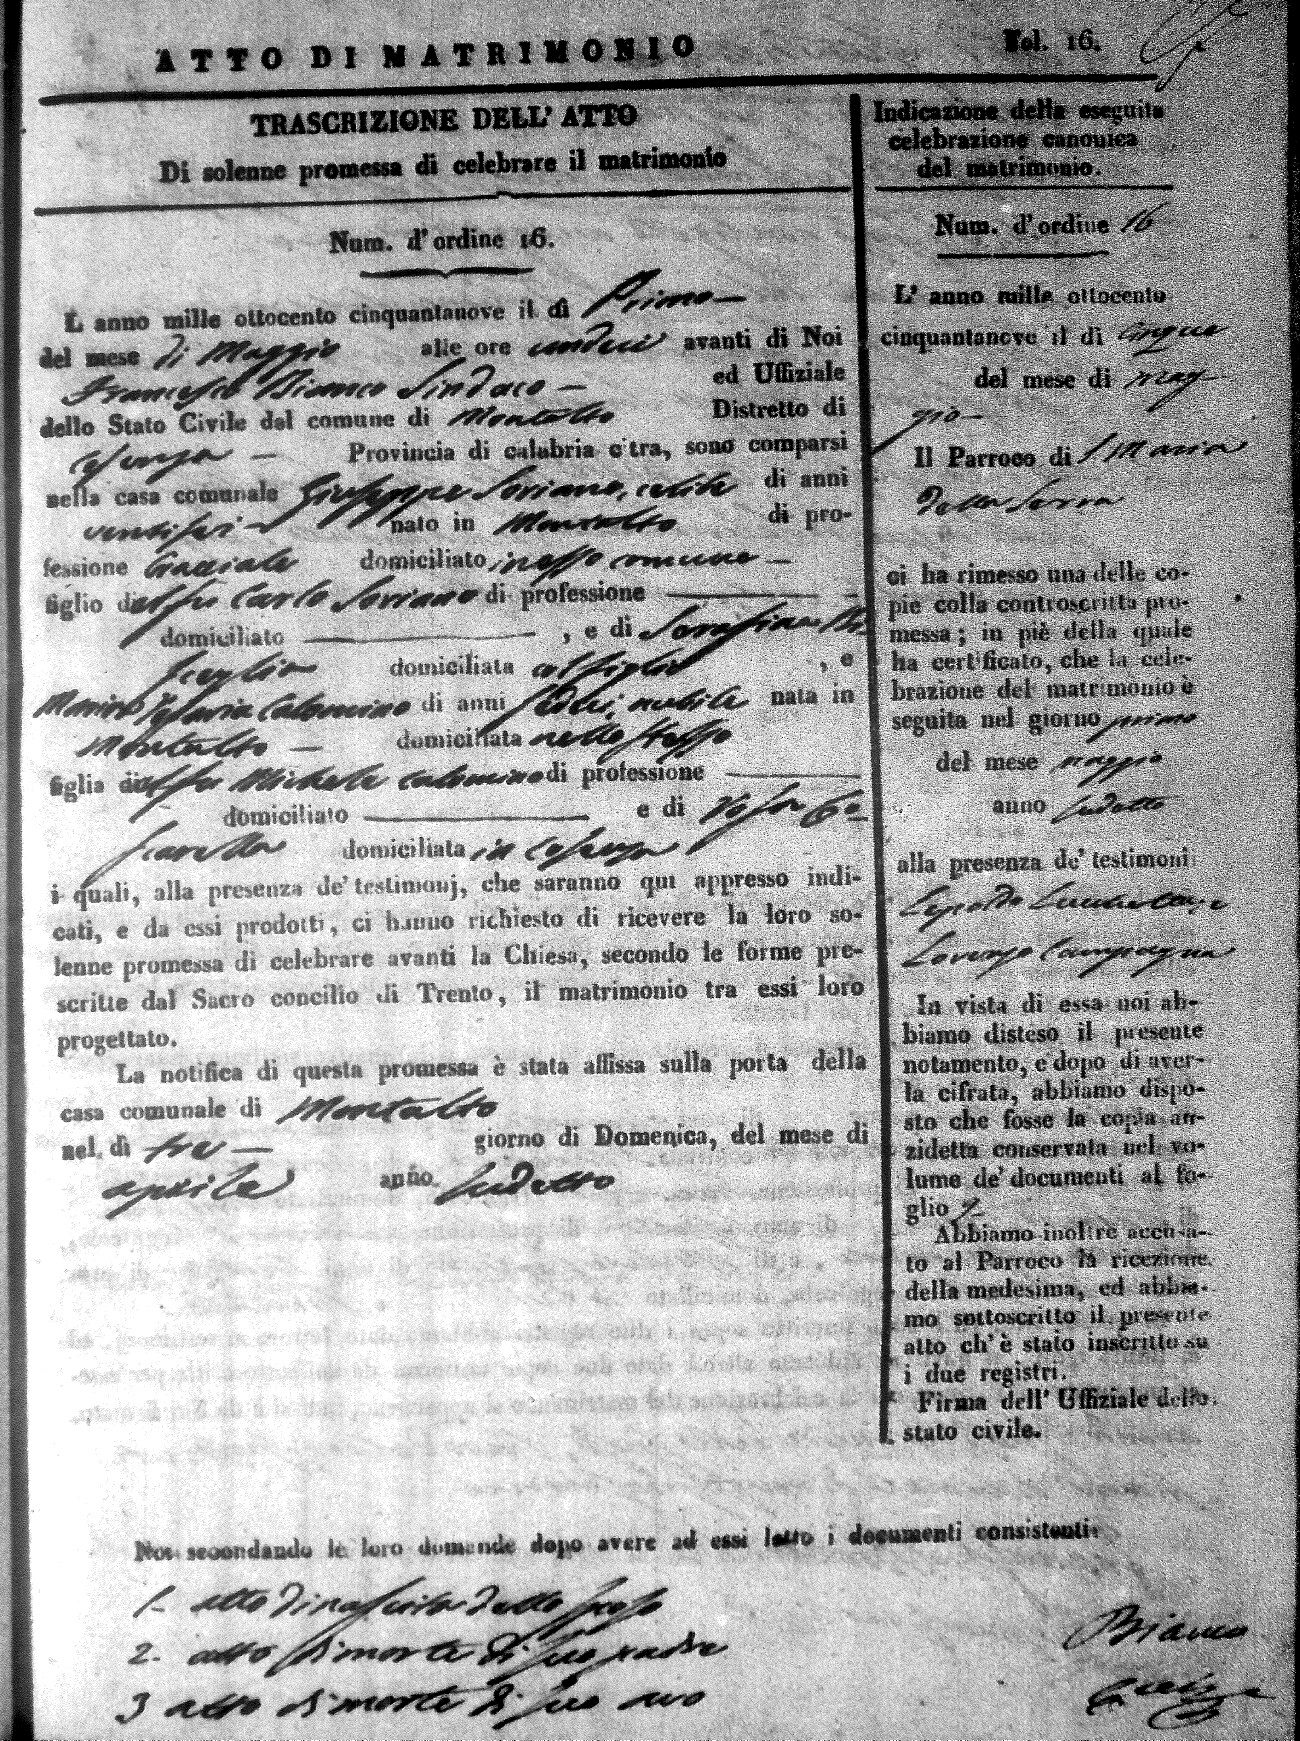 ATTO DI MATRIMONIO
Vol. 16.
TRASCRIZIONE DELL' ATTO
Di solenne promessa di celebrare il matrimonio
Num. d'ordine 16.
L' anno mille ottocento cinquantanove il dì Primo
del mese di Maggio alle ore undeci avanti di Noi
Francesco Bianco Sindaco ed Uffiziale
dello Stato Civile del comune di Montalto Distretto di
Cosenza Provincia di calabria citra, sono comparsi
nella casa comunale Giuseppe Soriano, celibe di anni
ventisei nato in Montalto di pro-
fessione domiciliato in esso comune
figlio di Carlo Soriano di professione
domiciliato , e di
domiciliata col figlio , e
Calomino di anni sedeci, nubile nata in
Montalto domiciliata nello stesso
figlia di Michele Calomino di professione
domiciliato e di
domiciliata in Cosenza
i quali, alla presenza de' testimonj, che saranno qui appresso indi-
cati, e da essi prodotti, ci hanno richiesto di ricevere la loro so-
lenne promessa di celebrare avanti la Chiesa, secondo le forme pre-
scritte dal Sacro concilio di Trento, il matrimonio tra essi loro
progettato.
La notifica di questa promessa è stata affissa sulla porta della
casa comunale di Montalto
nel dì tre giorno di Domenica, del mese di
aprile anno sudetto
Indicazione della eseguita
celebrazione canonica
del matrimonio.
Num. d'ordine 16
L' anno mille ottocento
cinquantanove il dì cinque
del mese di mag
gio
Il Parroco di S. Maria
della Serra
ci ha rimesso una delle co-
pie colla controscritta pro-
messa; in piè della quale
ha certificato, che la cele-
brazione del matrimonio è
seguita nel giorno primo
del mese maggio
anno sudetto
alla presenza de' testimoni
Lorenzo Campagna
In vista di essa noi ab-
biamo disteso il presente
notamento, e dopo di aver-
la cifrata, abbiamo dispo-
sto che fosse la copia an-
zidetta conservata nel vo-
lume de' documenti al fo-
glio
Abbiamo inoltre accusa-
to al Parroco la ricezione
della medesima, ed abbia-
mo sottoscritto il presente
atto ch' è stato inscritto su
i due registri.
Firma dell' Uffiziale dello
stato civile.
Noi secondando le loro domande dopo avere ad essi letto i documenti consistenti
1. atto di nascita dello sposo
2. atto di morte di suo padre
3 atto di morte di suo avo
Bianco